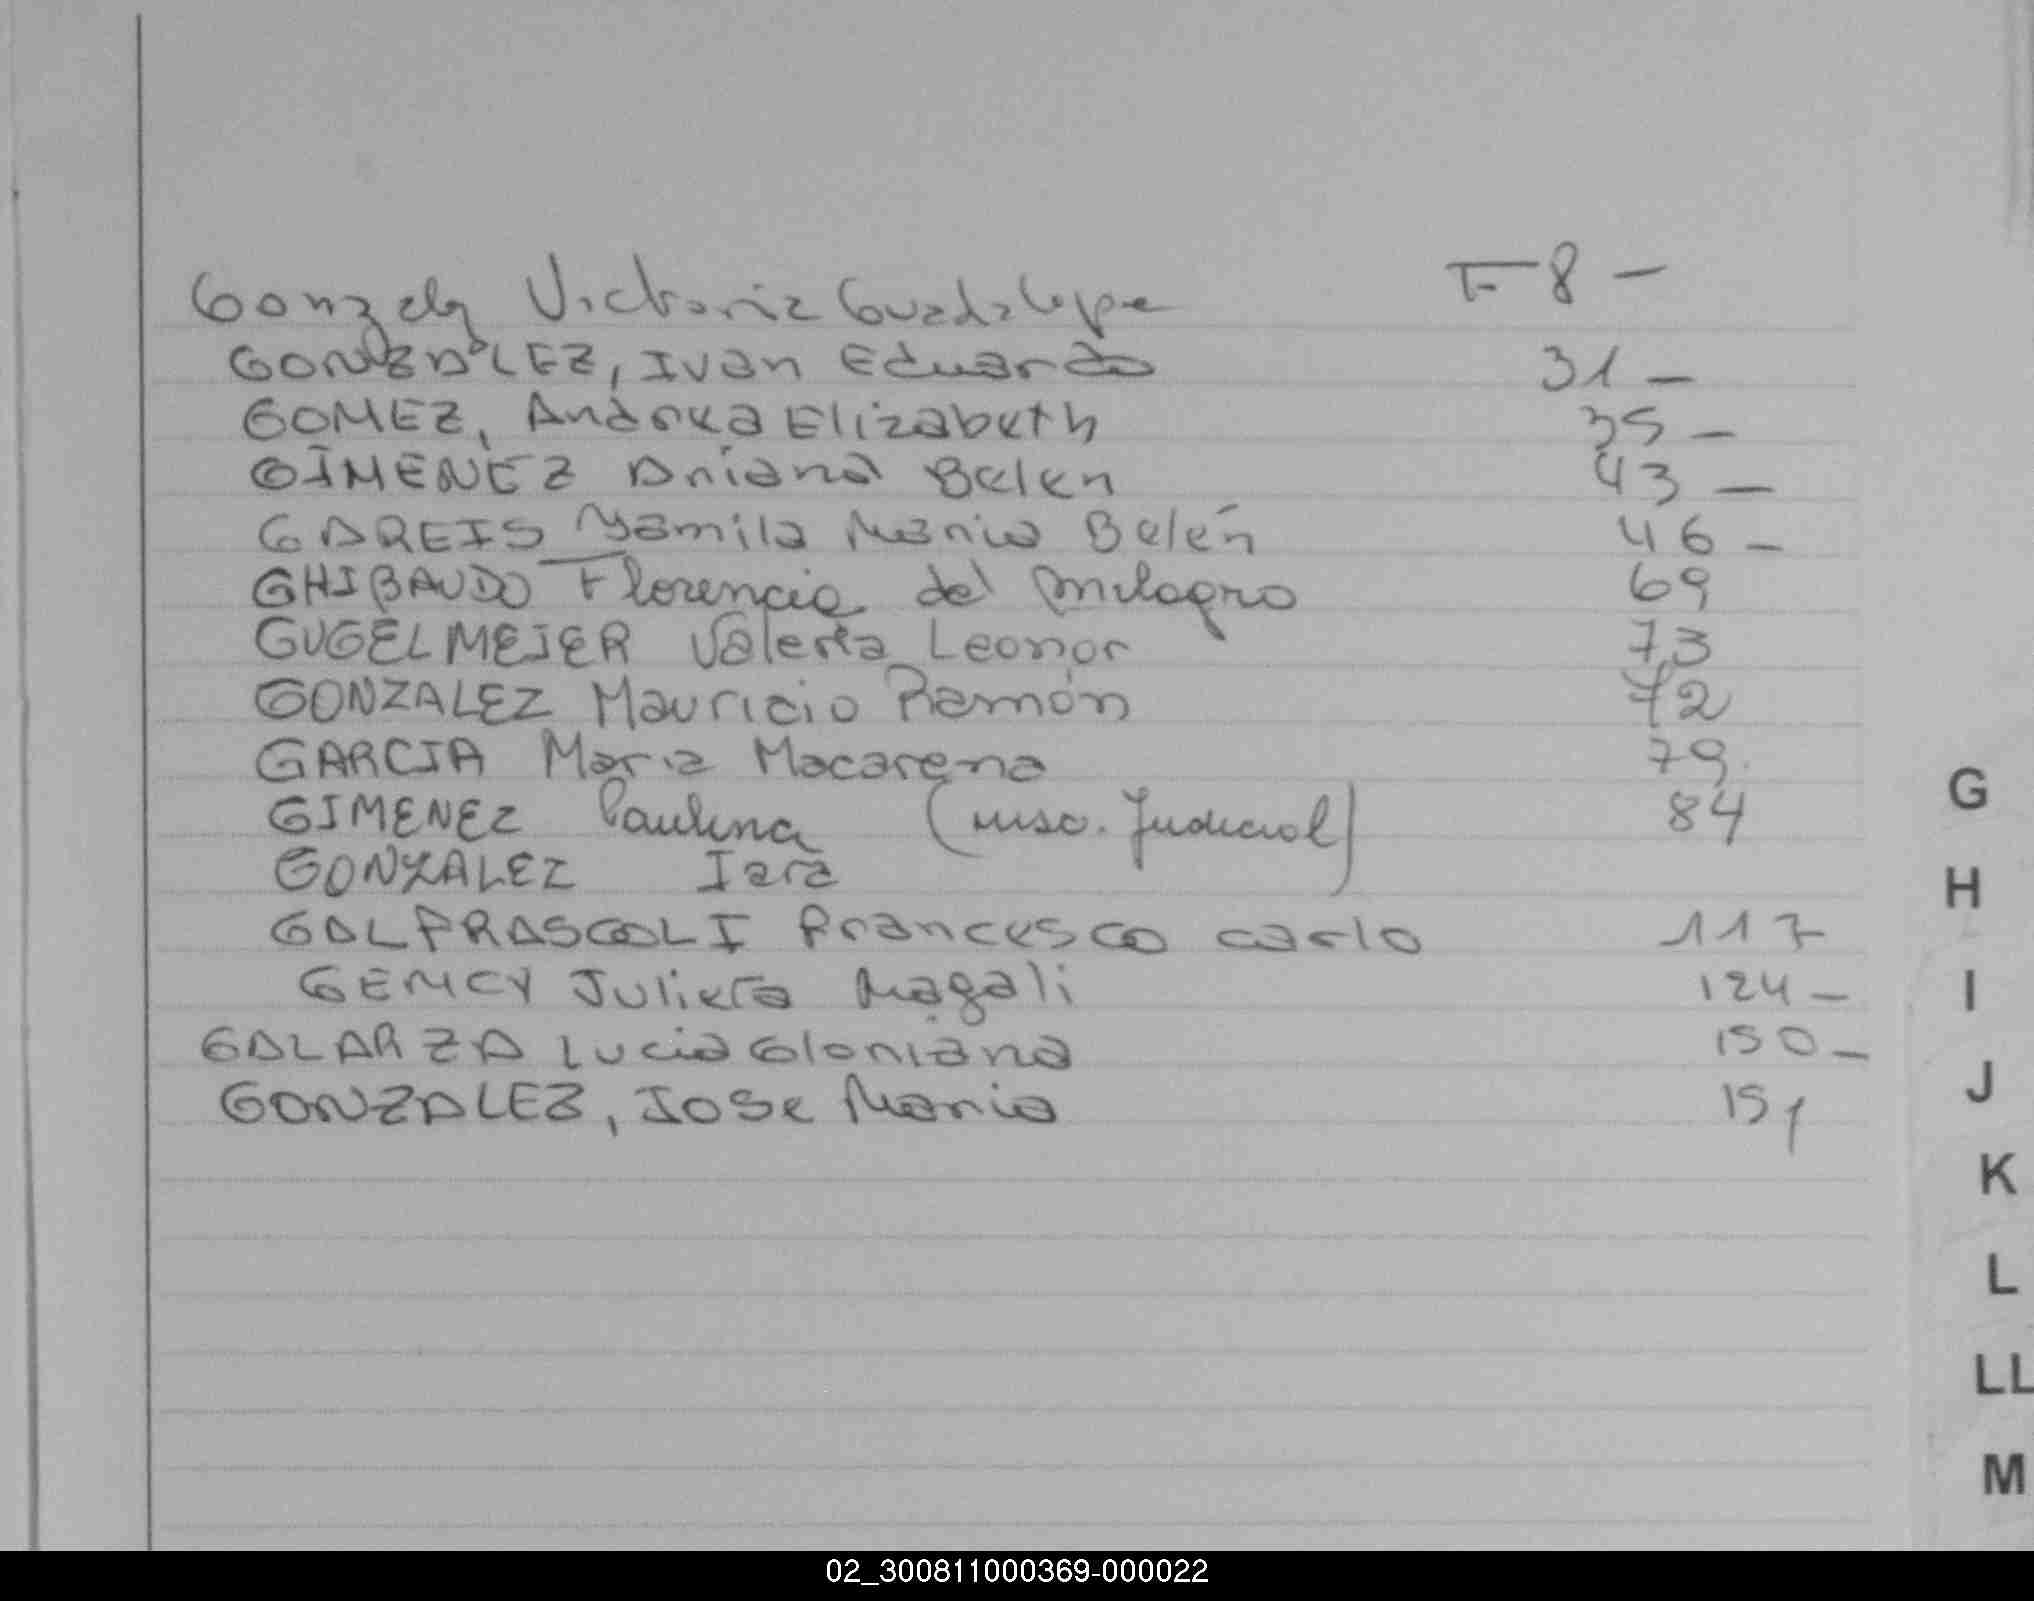 Gonzalez Victoria Guadalupe F-8 -
GONZALEZ, Ivan Eduardo 31 -
GOMEZ, Andrea Elizabeth 35 -
GIMENEZ Ariana Belen 43 -
GAREIS Yamila Maria Belén 46 -
GHIBAUDO Florencia del Milagro 69
GUGELMEIER Valeria Leonor 73
GONZALEZ Mauricio Ramón 72
GARCIA Maria Macarena 79
GIMENEZ Paulina (insc. Judicial) 84
GONZALEZ Iara
GALFRASCOLI Francesco Carlo 117
GEMCY Julieta Magali 124 -
GALARZA Lucia Gloriana 150 -
GONZALEZ, Jose Maria 151
G
H
I
J
K
L
LL
M
02_300811000369-000022